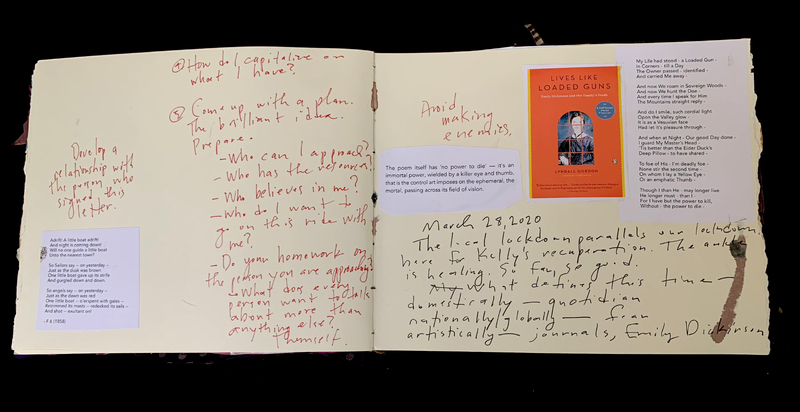 ④ How do I capitalize on
what I have?
⑤ Come up with a plan.
The brilliant idea.
Prepare.
- Who can I approach?
- Who has the resources?
- Who believes in me?
- Who do I want to
go on this ride with
me?
- Do your homework on
the person you are approaching
- What does every
person want to talk
about more than
anything else?
Themself.
Develop a
relationship with
the person who
signed this
letter.
Adrift! A little boat adrift!
And night is coming down!
Will no one guide a little boat
Unto the nearest town?
So Sailors say -- on yesterday --
Just as the dusk was brown
One little boat gave up its strife
And gurgled down and down.
So angels say -- on yesterday --
Just as the dawn was red
One little boat -- o'erspent with gales --
Retrimmed its masts -- redecked its sails --
And shot -- exultant on!
- F 6 (1858)
Avoid
making
enemies.
The poem itself has 'no power to die' — it's an
immortal power, wielded by a killer eye and thumb,
that is the control art imposes on the ephemeral, the
mortal, passing across its field of vision.
LIVES LIKE
LOADED GUNS
Emily Dickinson and Her Family's Feuds
LYNDALL GORDON
My Life had stood - a Loaded Gun -
In Corners - till a Day
The Owner passed - identified -
And carried Me away -
And now We roam in Sovreign Woods -
And now We hunt the Doe -
And every time I speak for Him
The Mountains straight reply -
And do I smile, such cordial light
Opon the Valley glow -
It is as a Vesuvian face
Had let it's pleasure through -
And when at Night - Our good Day done -
I guard My Master's Head -
'Tis better than the Eider Duck's
Deep Pillow - to have shared -
To foe of His - I'm deadly foe -
None stir the second time -
On whom I lay a Yellow Eye -
Or an emphatic Thumb -
Though I than He - may longer live
He longer must - than I -
For I have but the power to kill,
Without - the power to die -
March 28, 2020
The local lockdown parallels our lockdown
here for Kelly's recuperation. The ankle
is healing. So far, so good.
What defines this time —
domestically — quotidian
nationally/globally — fear
artistically — journals, Emily Dickinson